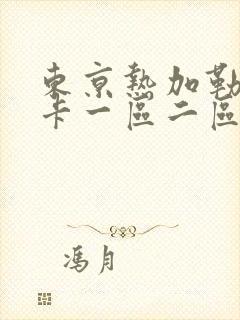 東京熱加勒
卡一區二區
馮月